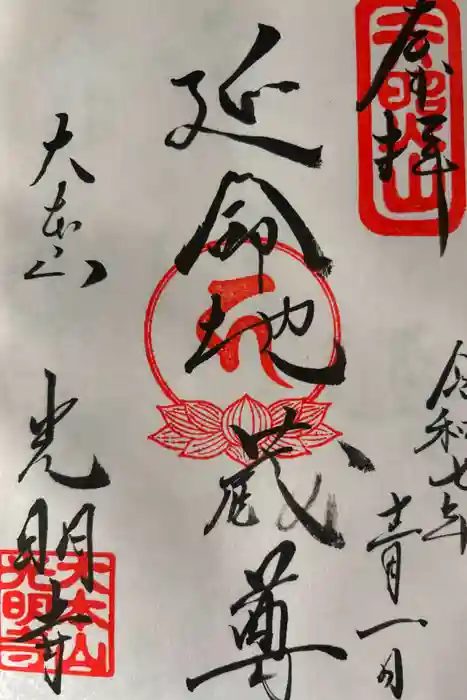 奉拝
天照山
令和七年
十一月一日
延命地蔵尊
大本山
光明寺
大本山
光明寺